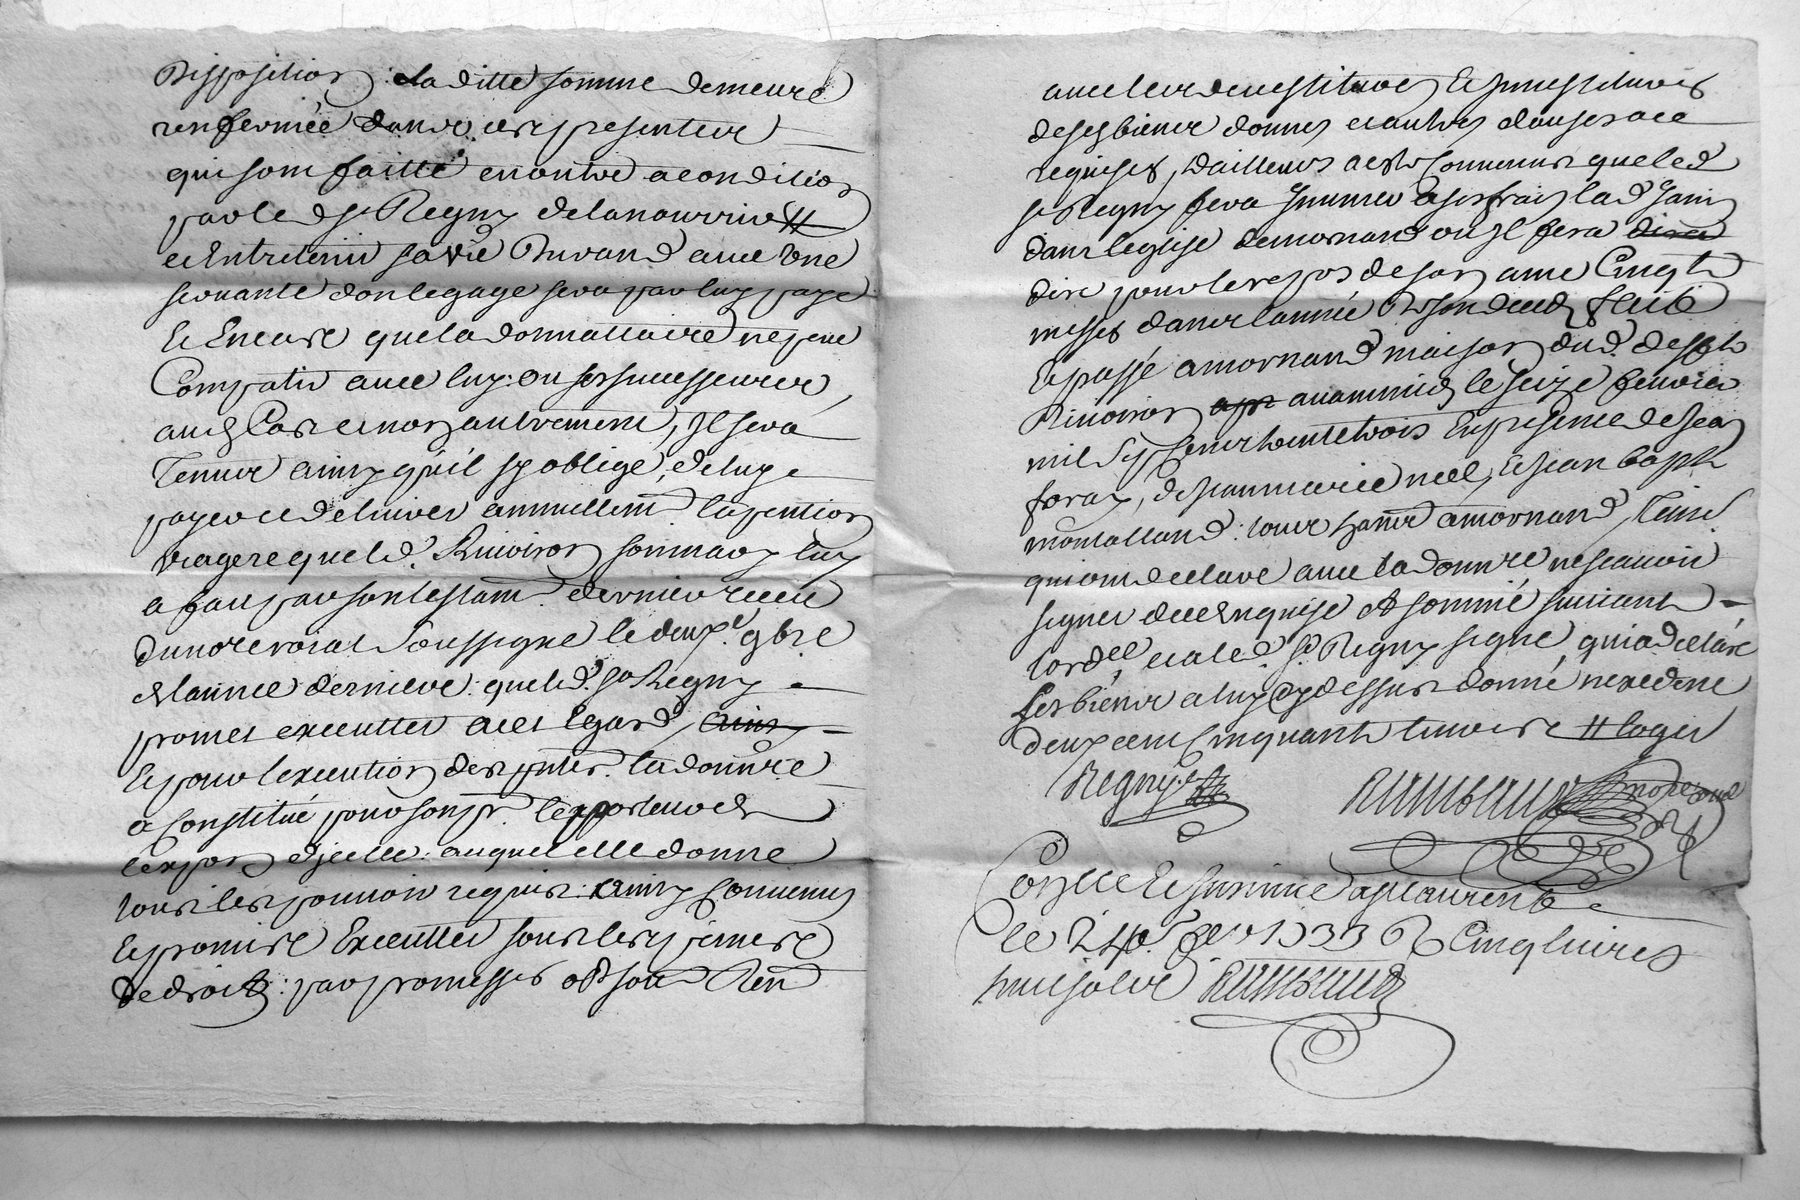 Disposition : la ditte somme demeure
renfermée dans ces presentes
qui sont faitte en outre a condition
par led sr Regny de la nourrir #
et Entretenir sa vie Durand avec Une
servante don le gage sera par luy paye
Et Encas que la donnattaire ne peut
Compatir avec luy ou ses successeurs
aud Cas et non autrement, Il sera
Tenut ainsy qu'il sy oblige, de luy
payer et delivrer annuellemt la pention
viagere que led. Rivoiron son mary luy
a fait par son testamt dernier receu
du nore roial soussigne le deuxe 9bre
de lannee derniere : que led. sr Regny
promet executter a cet Egard,
Et pour lexecution des pntes la donnre
a Constitué pour son pr. le porteur de
lexpon dicelle auquel elle donne
tous les pouvoir requis : ainsy Convenus
Et promise Executter sous les peine
de droit : par promesses obson Ren
avec leur de restitutes Et
de ses biens donnes et autres clauses a ce
requises, Dailleurs a este Convenus que led
sr Regny fera Inumer a ses frais lad Janin
dans leglise de mornand ou Il fera
dire pour le repos de son ame Cinqte
messes dans lannée de son deced, faite
Et passé a mornand maison dud. deft
Rivoiron avant midy le seize fevrier
mil sept cent trente trois En presence de Jean
foray, de Jean marie neel, et Jean bapte
montalland : tous hants a mornand, Temt
qui ont declare avec la donnre ne scavoir
signer de ce Enquise et sommé suivant
lordce et a led. sr Regny signe, qui a declare
les biens a luy cy dessus donné nexedent
deux cent Cinquante livres # loger
Regny
Rambaud nore roial
Conlle Et Insinue a st laurent
le 24e fevr 1733 Cinq livres
huit sols Rambaud